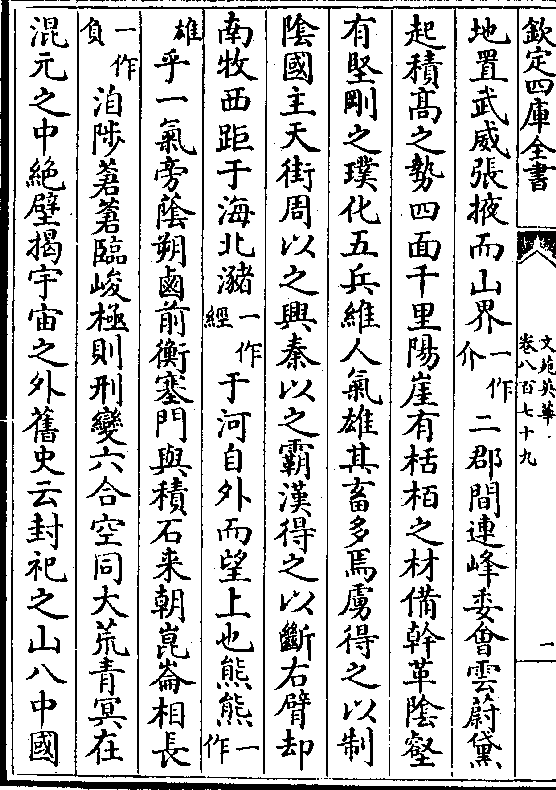 欽定四庫全書
文苑英華
卷八百七十九
一
地置武威張掖而山界一作介二郡間連峰委會雲蔚黛
起積髙之勢四面千里陽崖有栝栢之材備幹革陰壑
有堅剛之璞化五兵維人氣雄其畜多馬虜得之以制
陰國主天街周以之興秦以之霸漢得之以斷右臂却
南牧西距于海北瀦一作經于河自外而望上也熊熊一作
雄乎一氣旁蔭朔鹵前衡塞門與積石来朝崑崙相長
一作負洎陟荖荖臨峻極則刑變六合空同大荒青冥在
混元之中絶壁揭宇宙之外舊史云封祀之山八中國